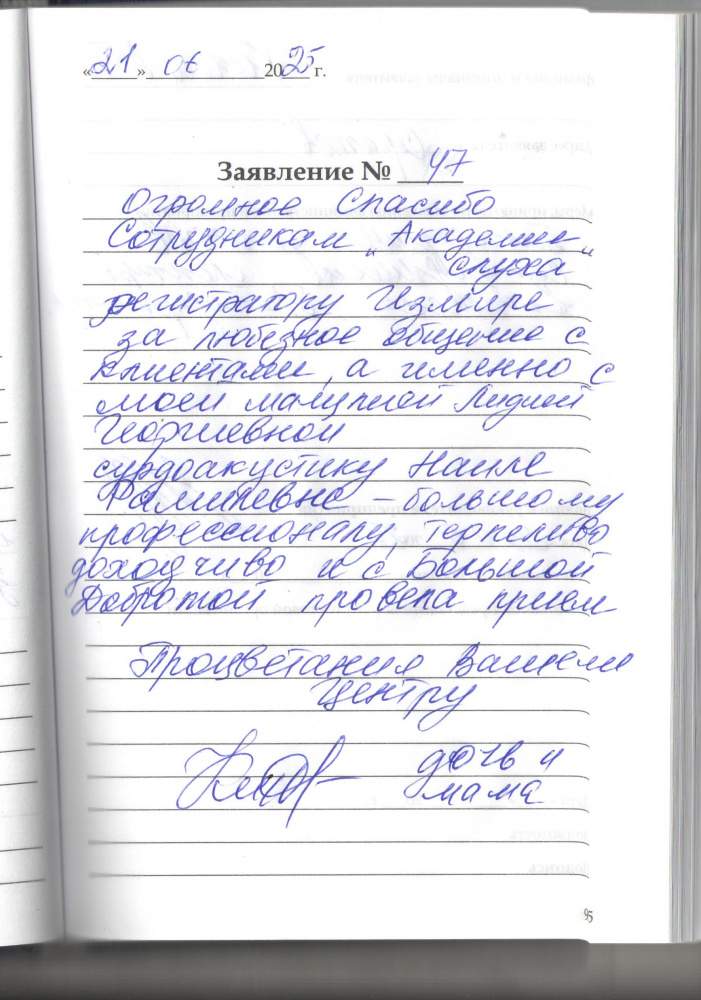 «21» 06 2025 г.
Заявление № 47
Огромное Спасибо
Сотрудникам „Академии
слуха"
регистратору Чезмире
за любезное общение с
клиентами, а именно с
моей мамулией Лидией
Георгиевной
сурдоакустику Наиле
Рамилевне – большому
профессионалу, терпеливо
доходчиво и с Большой
Добротой провела прием
Процветания Вашему
Центру
дочь и
мама
95